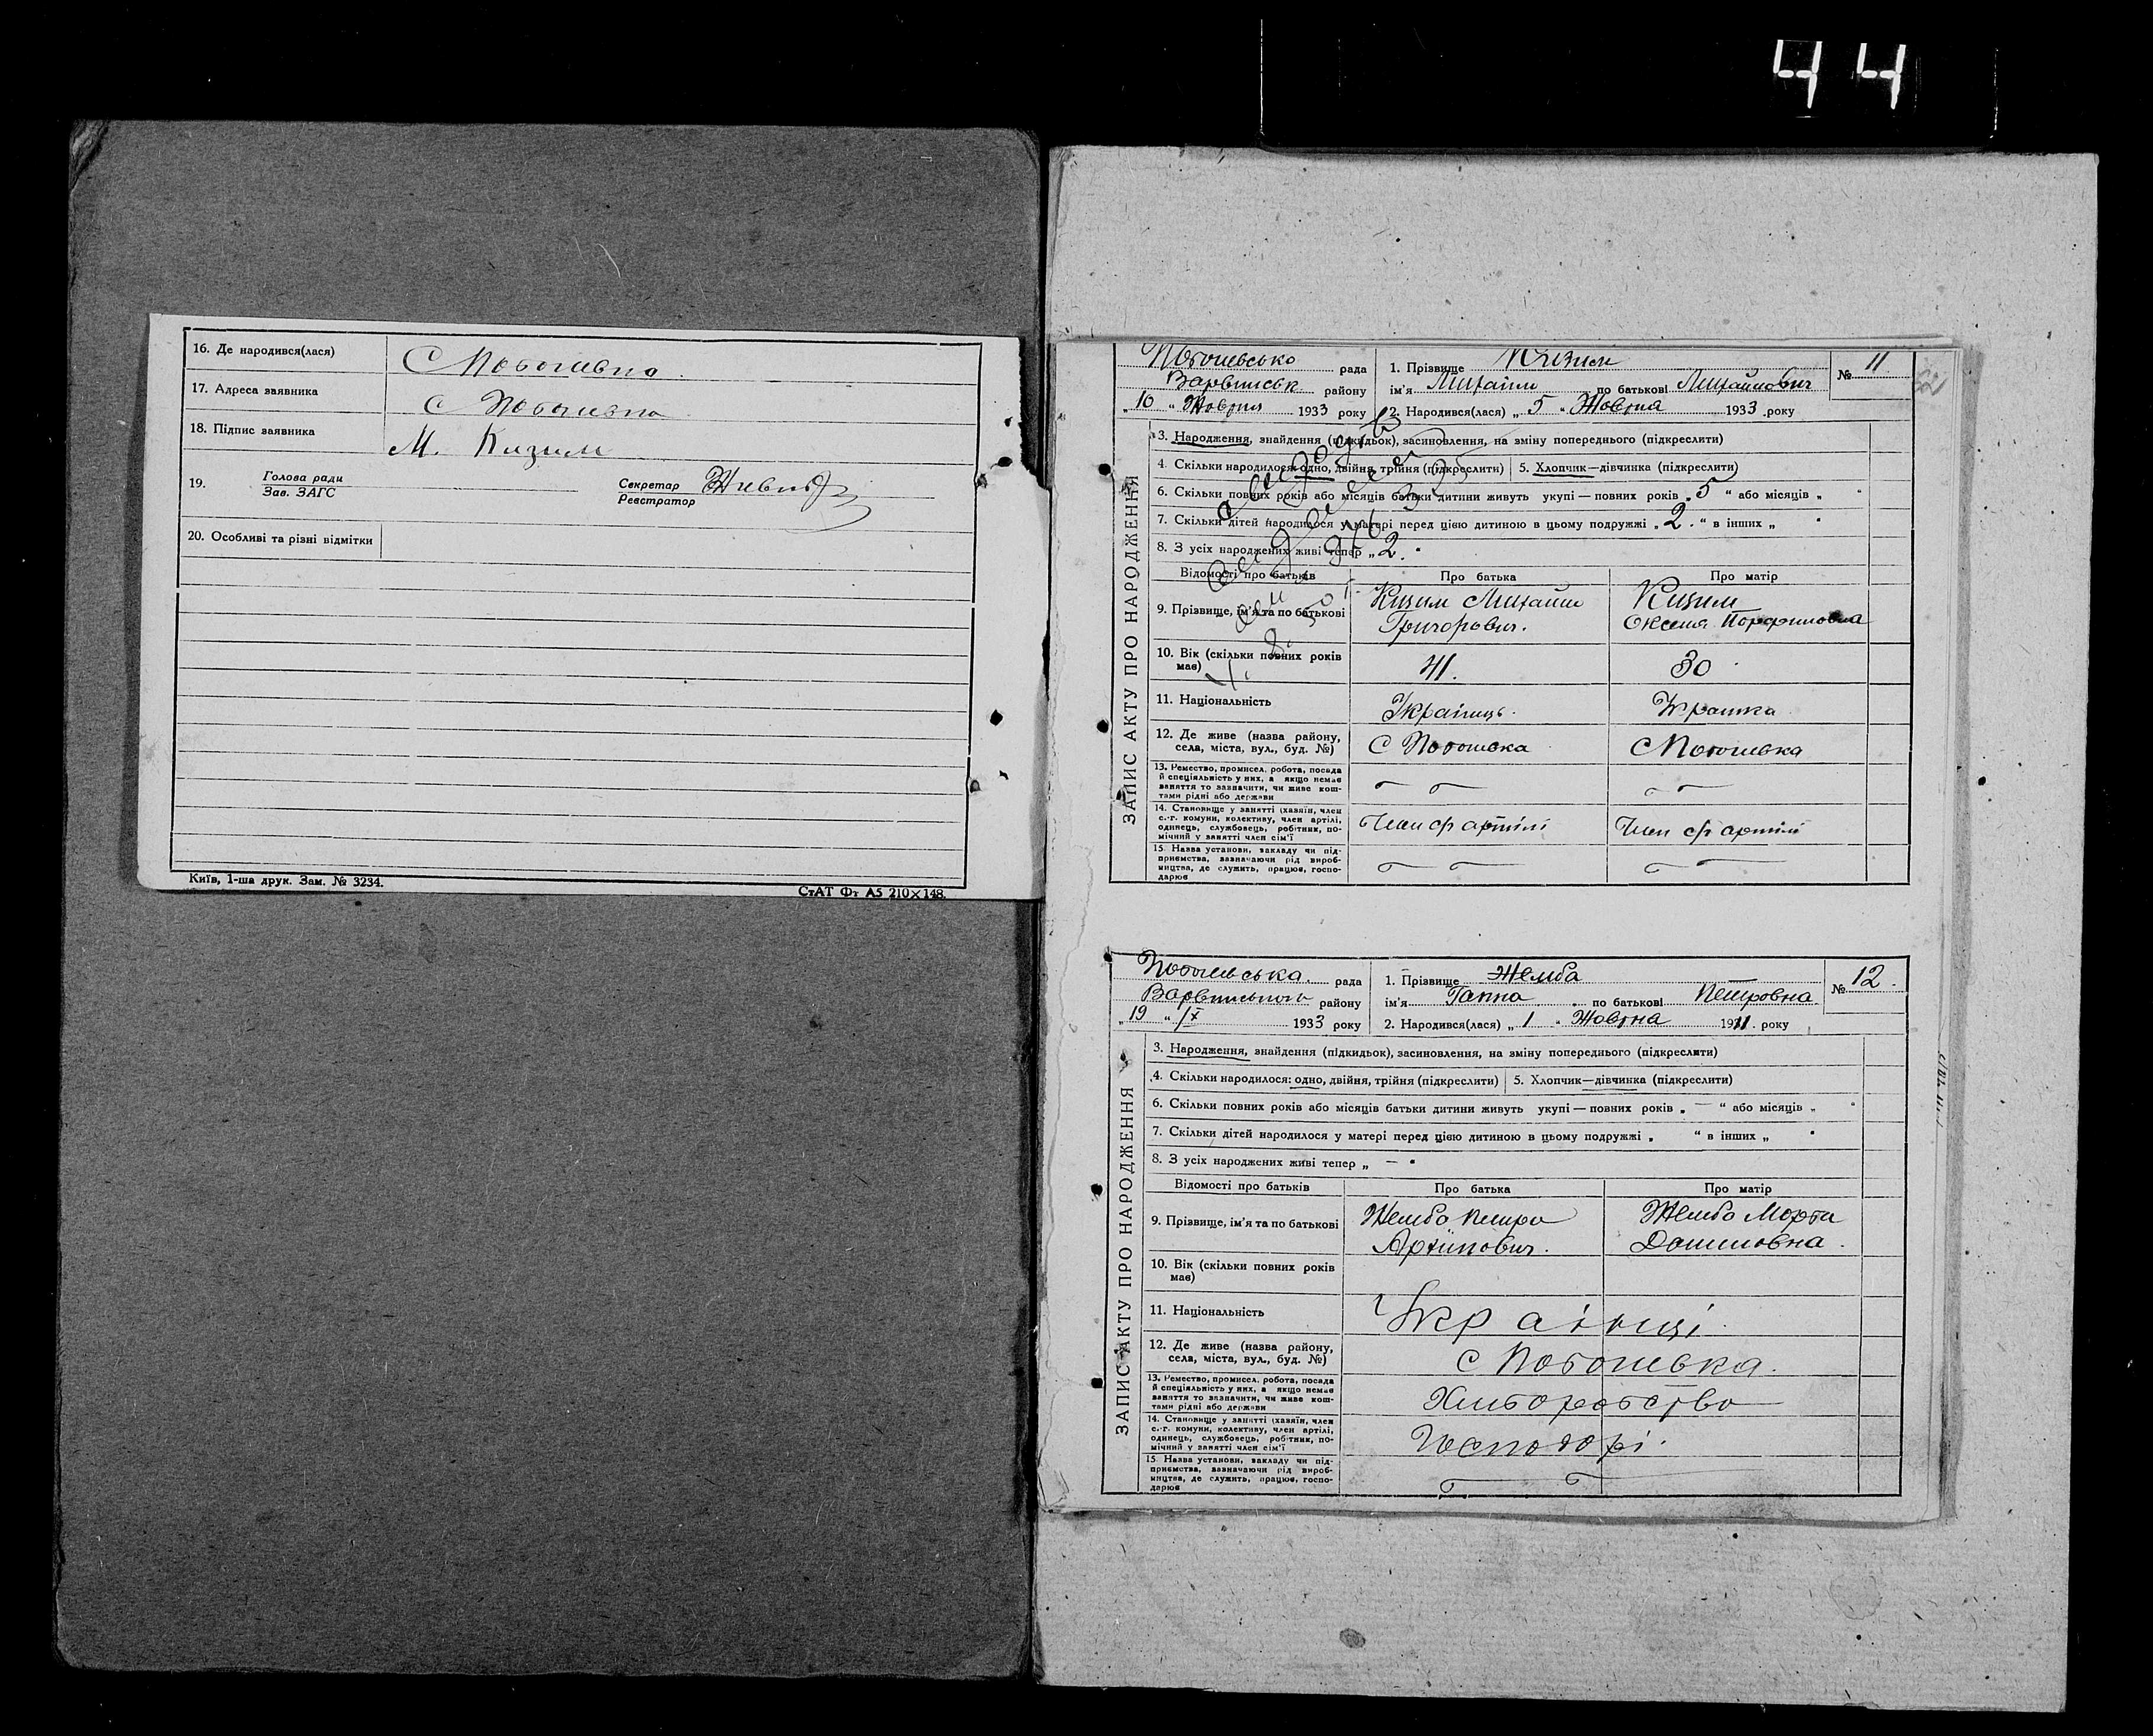 44
16. Де народився(лася)
17. Адреса заявника
18. Підпис заявника М. Кизим
19. Голова ради
Зав. ЗАГС
Секретар
Реєстратор
20. Особливі та різні відмітки
Київ, 1-ша друк. Зам. № 3234.
СтАТ Фт А5 210×148.
рада 1. Прізвище Кизим № 11
району ім'я Михайло по батькові Михайлович
„ 10 “ Жовтня 1933 року 2. Народився(лася) „ 5 “ Жовтня 1933 року
ЗАПИС АКТУ ПРО НАРОДЖЕННЯ
3. Народження, знайдення (підкидьок), засиновлення, на зміну попереднього (підкреслити)
4. Скільки народилося: одно, двійня, трійня (підкреслити) 5. Хлопчик—дівчинка (підкреслити)
6. Скільки повних років або місяців батьки дитини живуть укупі — повних років „ 5 “ або місяців „ “
7. Скільки дітей народилося у матері перед цією дитиною в цьому подружжі „ 2. “ в інших „ “
8. З усіх народжених живі тепер „ 2. “
Відомості про батьків Про батька Про матір
9. Прізвище, ім'я та по батькові Кизим Михайло Кизим
Григорович. Оксана
10. Вік (скільки повних років
має) 41. 30
11. Національність Українець. Українка
12. Де живе (назва району,
села, міста, вул., буд. №)
13. Ремество, промисел, робота, посада
й спеціяльність у них, а якщо немає
заняття то зазначити, чи живе кош-
тами рідні або держави
14. Становище у занятті (хазяїн, член
с.-г. комуни, колективу, член артілі,
одинець, службовець, робітник, по-
мічний у занятті член сім'ї Член с/г артілі Член с/г артілі
15. Назва установи, закладу чи під-
приємства, зазначаючи рід вироб-
ництва, де служить, працює, госпо-
дарює
рада 1. Прізвище Жемба № 12.
району ім'я Ганна по батькові Петровна
„ 19 “ IX 1933 року 2. Народився(лася) „ 1 “ Жовтня 1911. року
ЗАПИС АКТУ ПРО НАРОДЖЕННЯ
3. Народження, знайдення (підкидьок), засиновлення, на зміну попереднього (підкреслити)
4. Скільки народилося: одно, двійня, трійня (підкреслити) 5. Хлопчик—дівчинка (підкреслити)
6. Скільки повних років або місяців батьки дитини живуть укупі — повних років „ — “ або місяців „ “
7. Скільки дітей народилося у матері перед цією дитиною в цьому подружжі „ “ в інших „ “
8. З усіх народжених живі тепер „ — “
Відомості про батьків Про батька Про матір
9. Прізвище, ім'я та по батькові Жемба Петро Жемба Марта
Архипович. Даниловна.
10. Вік (скільки повних років
має)
11. Національність Українці.
12. Де живе (назва району,
села, міста, вул., буд. №)
13. Ремество, промисел, робота, посада
й спеціяльність у них, а якщо немає
заняття то зазначити, чи живе кош-
тами рідні або держави Хліборобство
14. Становище у занятті (хазяїн, член
с.-г. комуни, колективу, член артілі,
одинець, службовець, робітник, по-
мічний у занятті член сім'ї Господарі.
15. Назва установи, закладу чи під-
приємства, зазначаючи рід вироб-
ництва, де служить, працює, госпо-
дарює